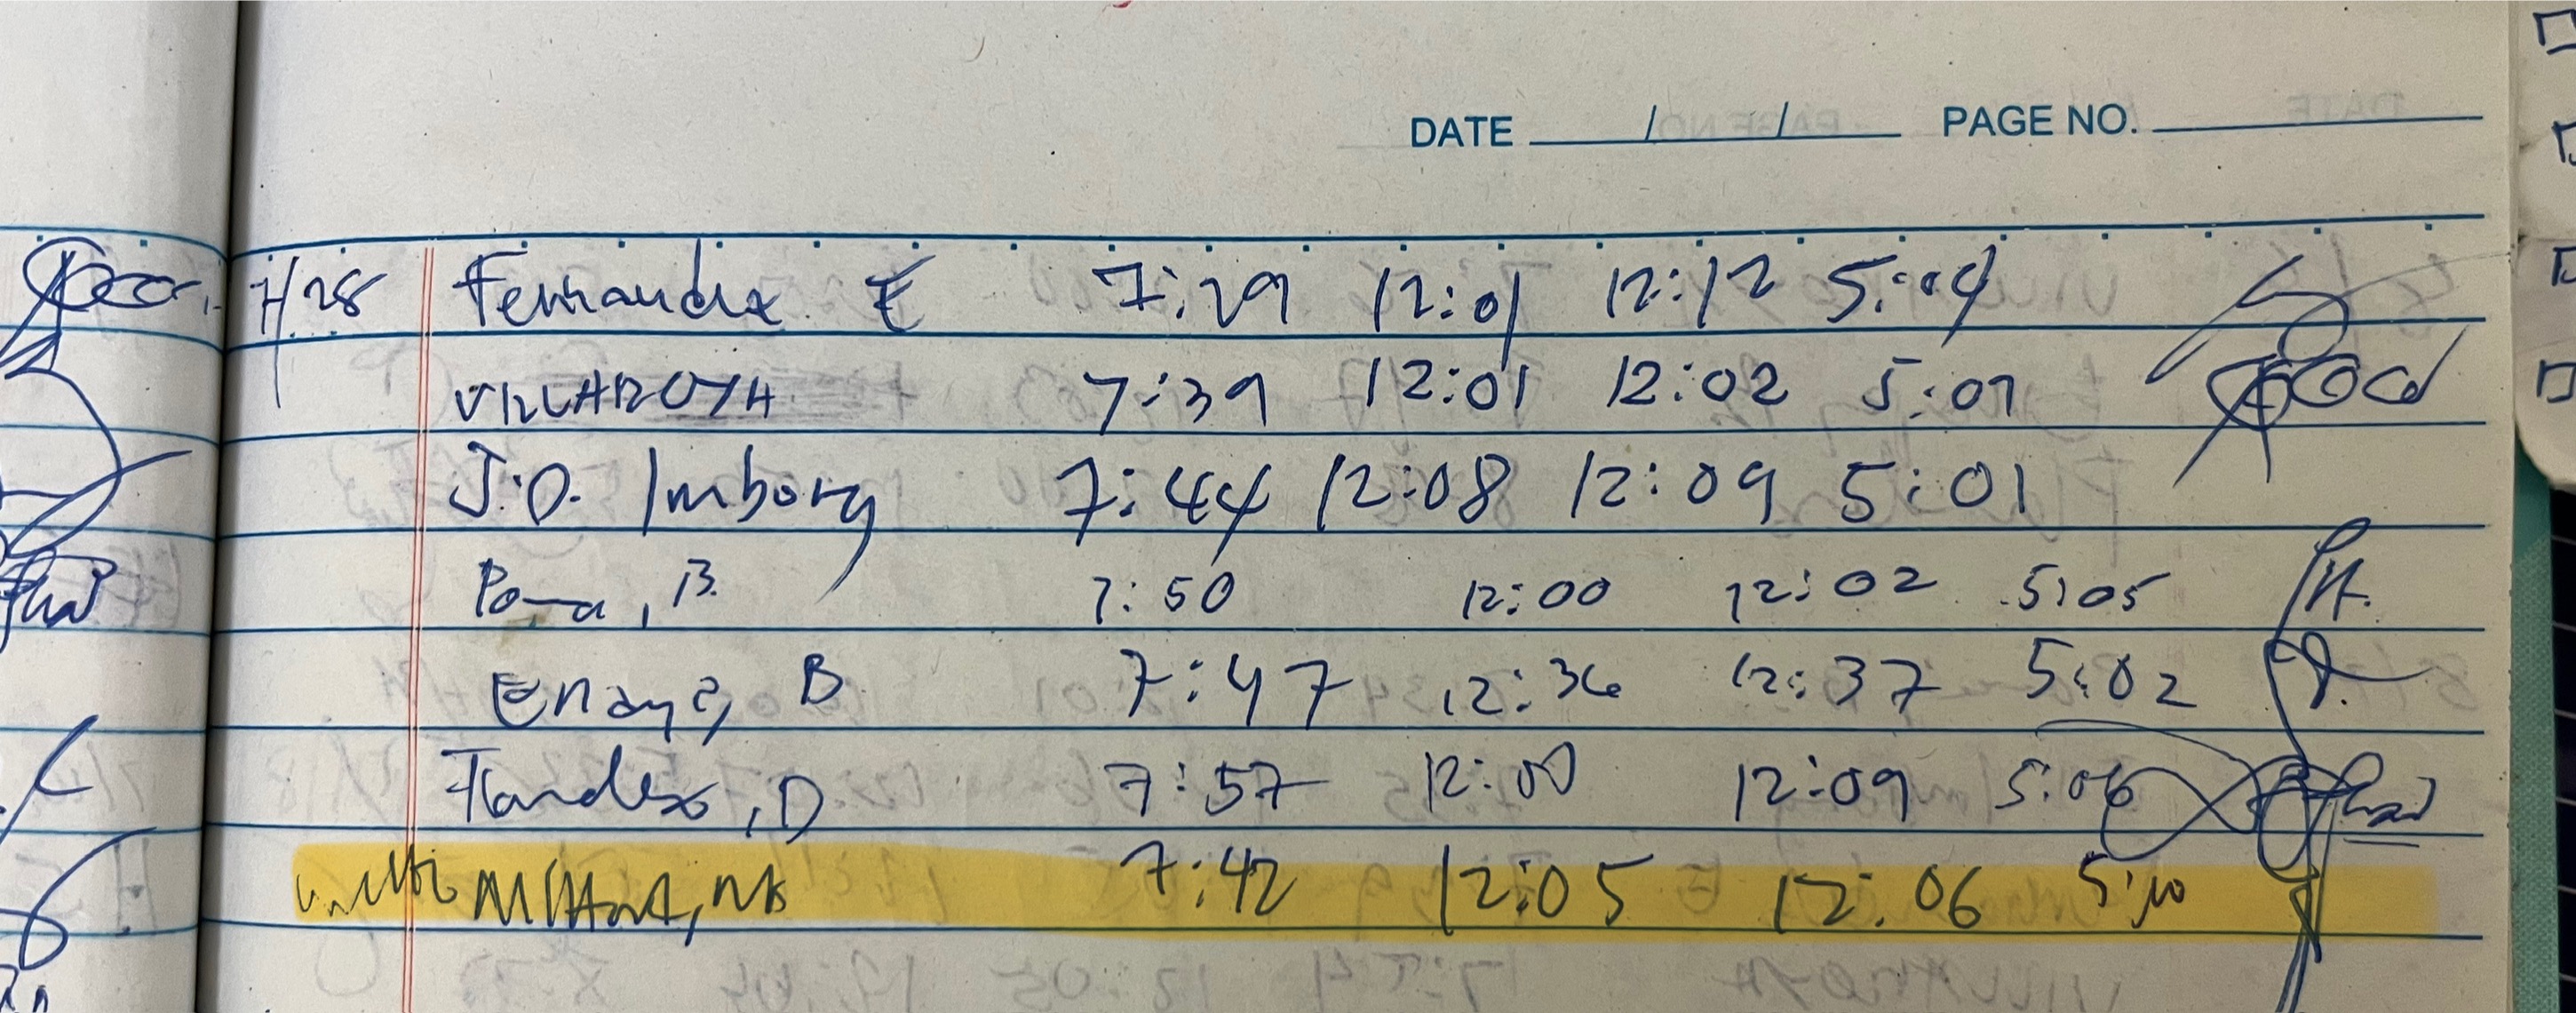 DATE / / PAGE NO.
7/28 Fernandez E 7:29 12:01 12:12 5:04
VILLAROYA 7:39 12:01 12:02 5:07
J.O. Imborg 7:44 12:08 12:09 5:01
Poma, B. 7:50 12:00 12:02 5:05
B 7:47 12:36 12:37 5:02
, D 7:57 12:00 12:09 5:06
7:42 12:05 12:06 5:10